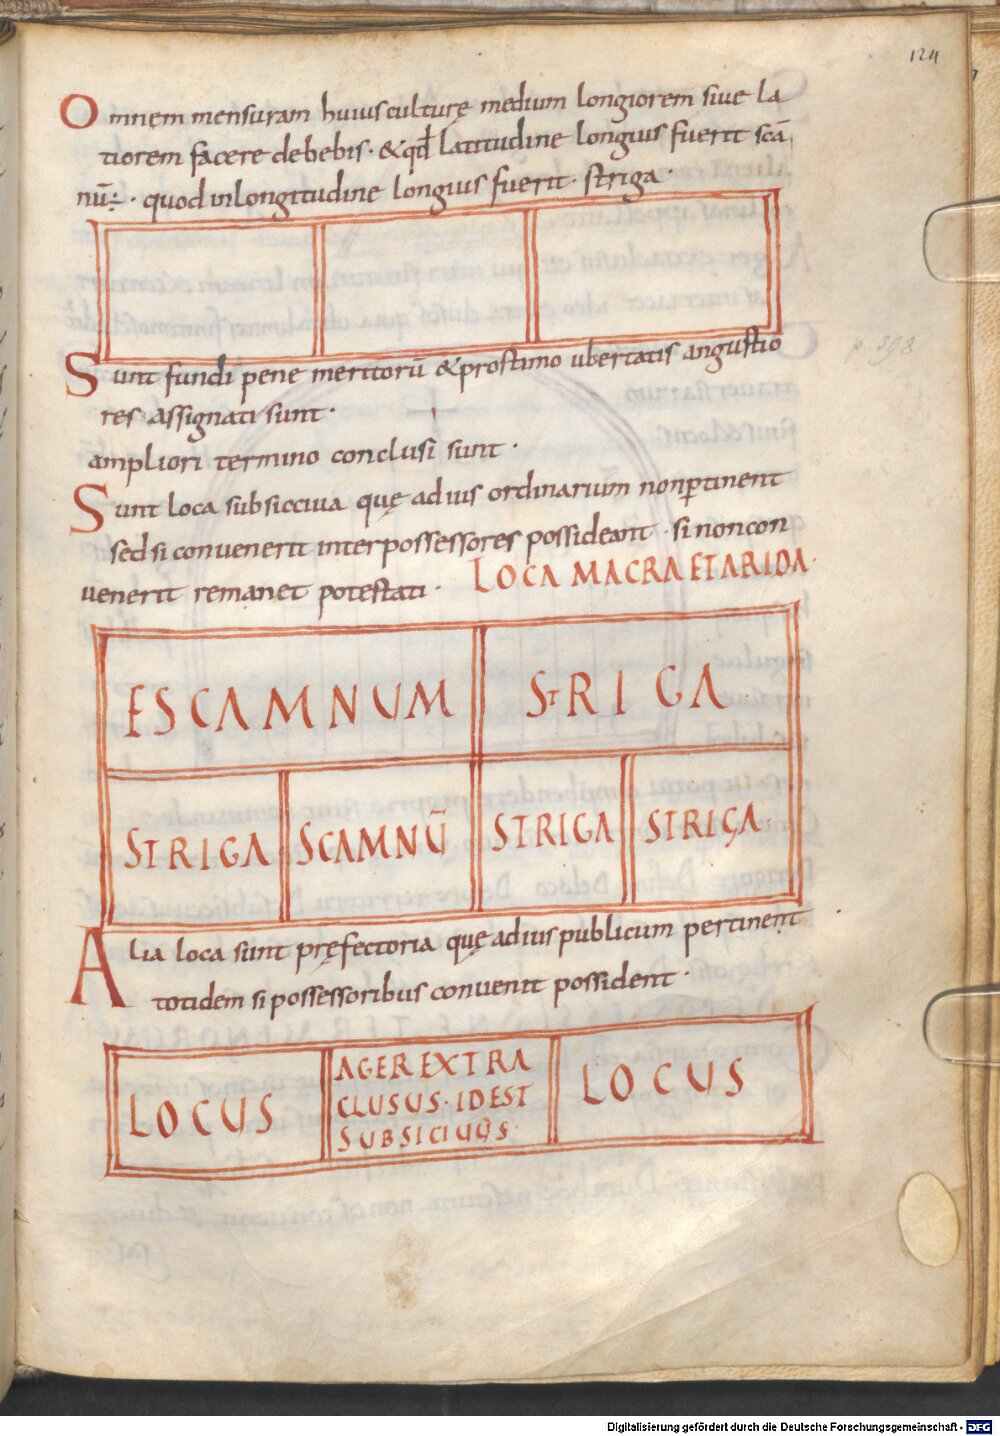 124
Omnem mensuram huius culturę medium longiorem siue la
tiorem facere debebis · & qđ latitudine longius fuerit scā
nū÷ · quod in longitudine longius fuerit · striga ·
p. 398
Sunt fundi pene meritorū & prostimo ubertatis angustio
res assignati sunt ·
ampliori termino conclusi sunt ·
Sunt loca subsicciua quę ad ius ordinarium non ꝑtinent
sed si conuenerit inter possessores possideant · si non con
uenerit remanet potestati ·
LOCA MACRA ET ARIDA ·
ESCAMNUM STRIGA
STRIGA SCAMNŪ STRIGA STRIGA
Alia loca sunt pręfectoria quę ad ius publicum pertinent
totidem si possessoribus conuenit possident ·
LOCUS
AGER EXTRA
CLUSUS · ID EST
SUBSICIUUS ·
LOCUS
Digitalisierung gefördert durch die Deutsche Forschungsgemeinschaft - DFG